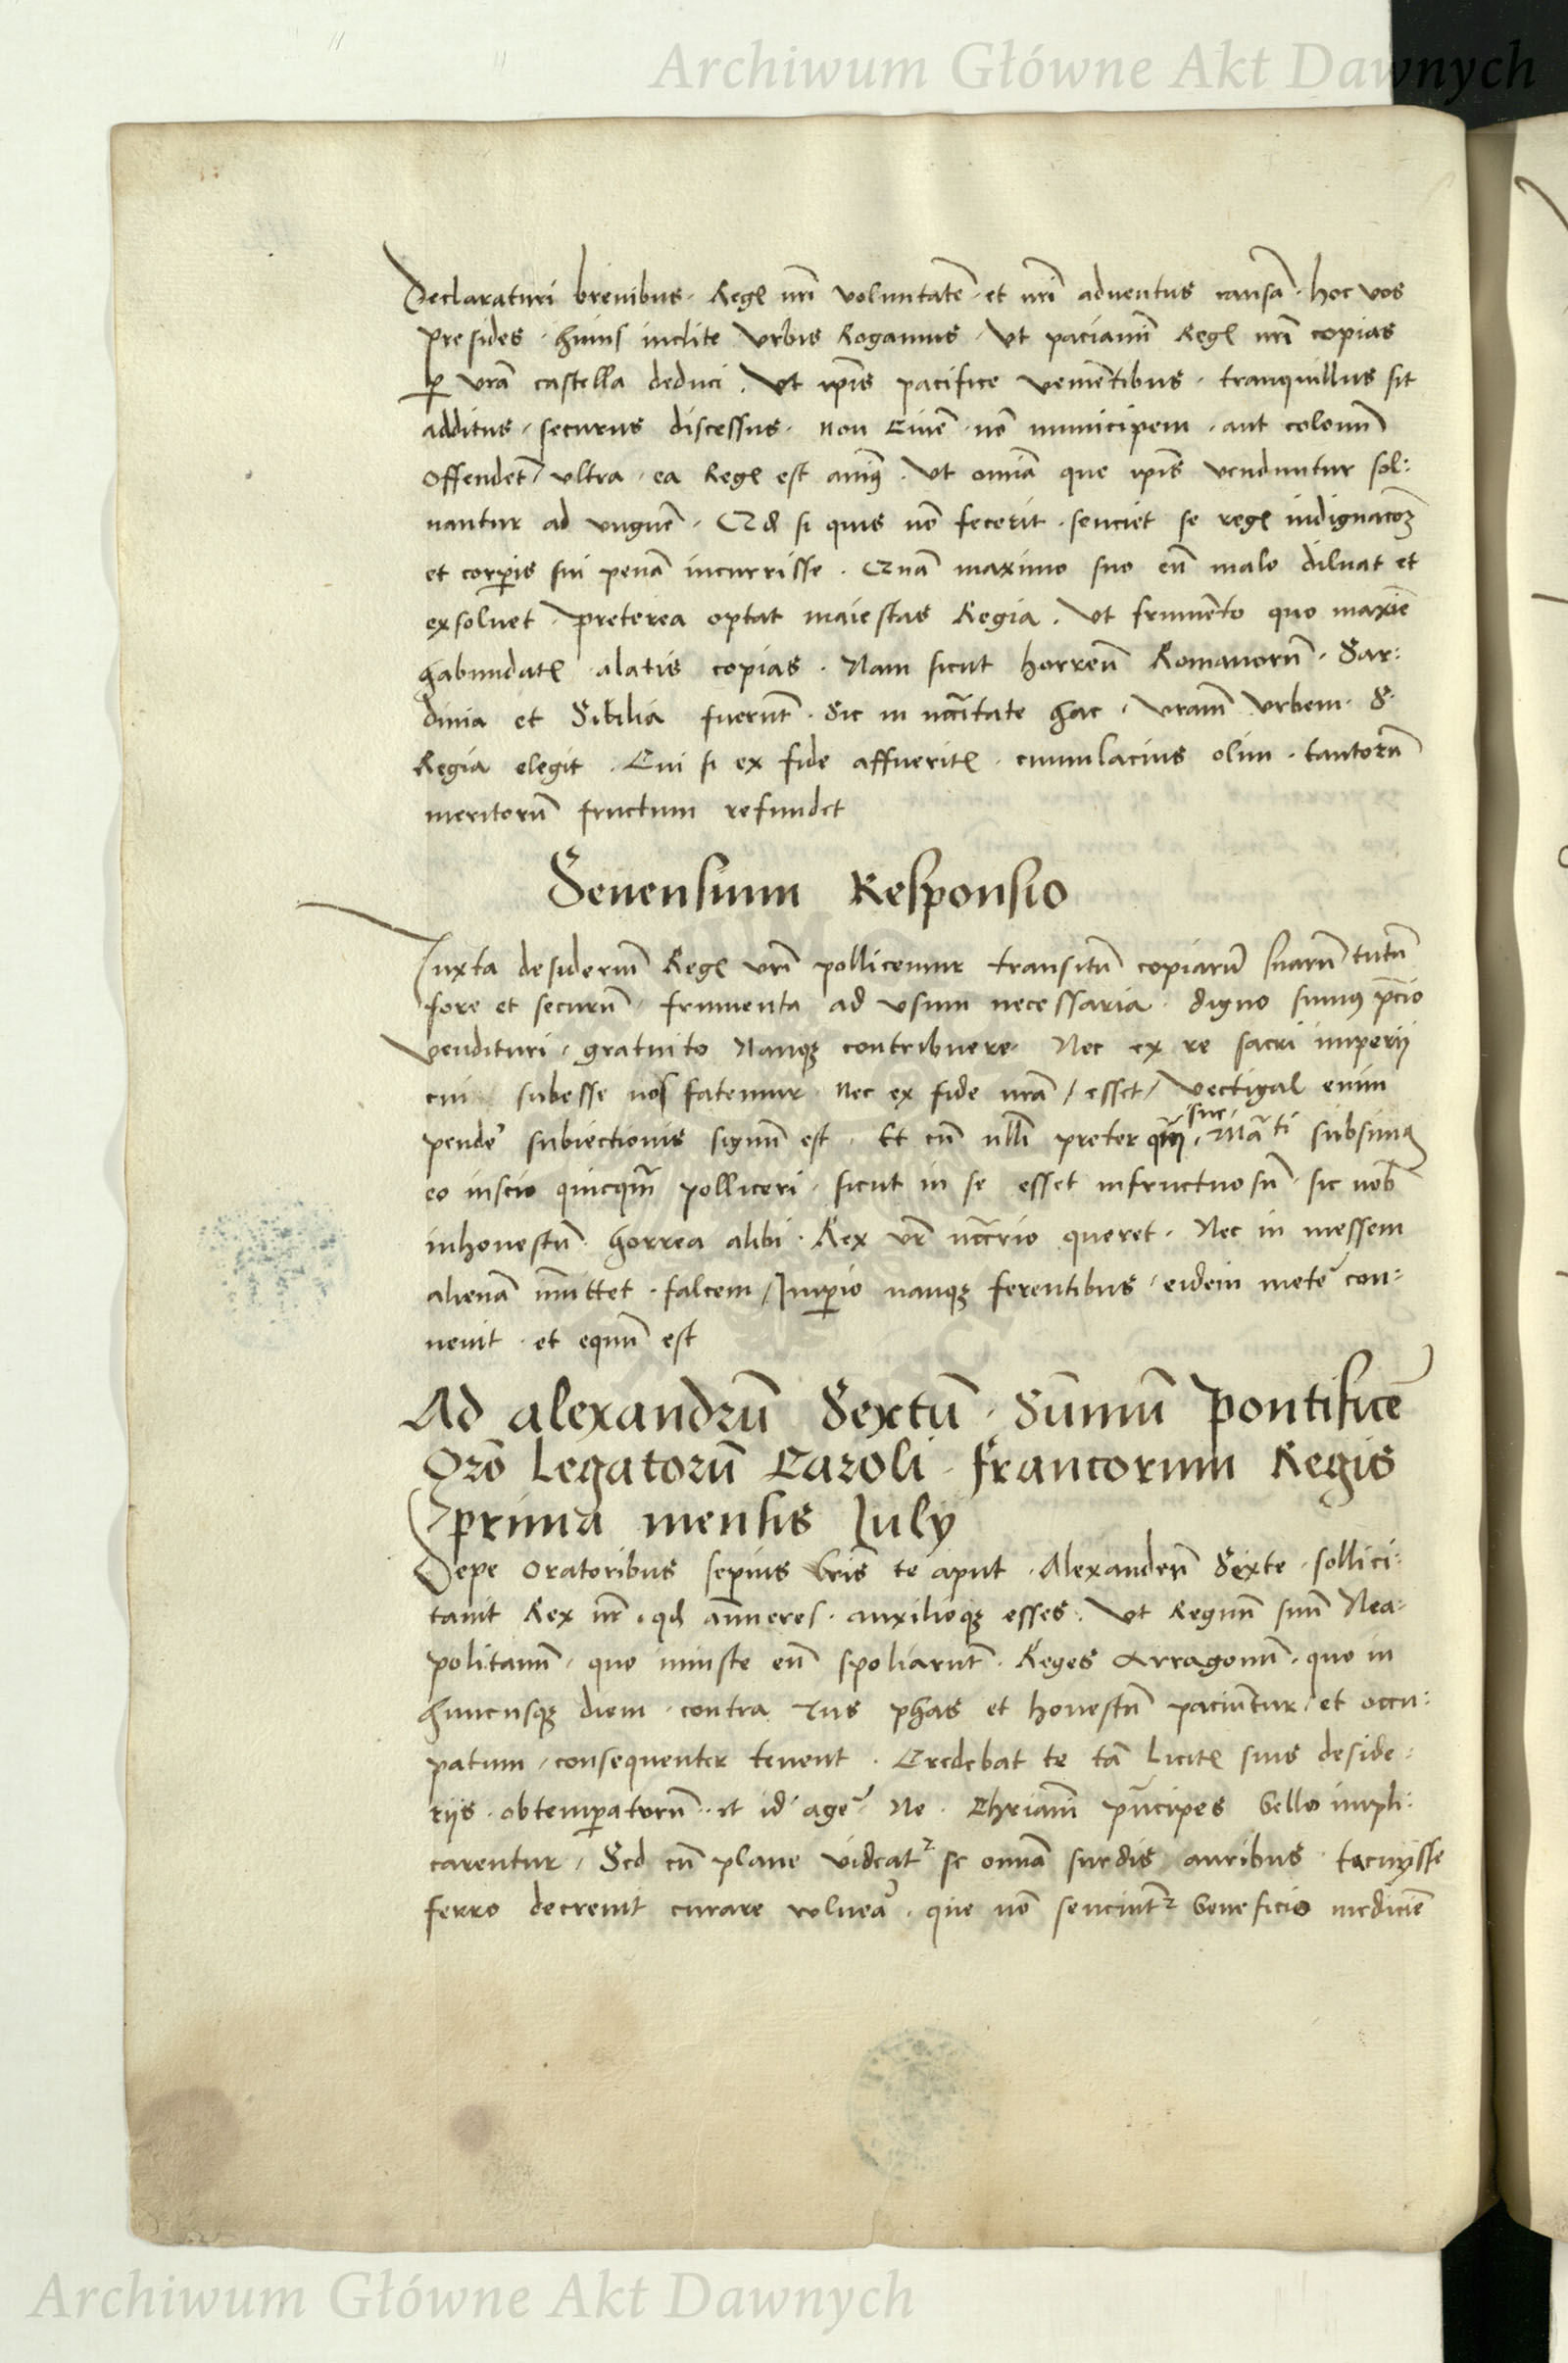 Archiwum Główne Akt Dawnych
Declaraturi breuibus. Regꝭ nr̄i voluntatē. et nr̄i aduentus causā. hoc vos
presides. huius inclite Vrbis Rogamus. Vt paciamī Regꝭ nr̄i copias
ꝑ vr̄a castella deduci. Vt ip̄is pacifice venientibus. tranquillus sit
additus. securus discessus. Non Ciuē. nō municipem. aut colonū
Offendēt/ vltra. ea Regꝭ est anīꝰ. Vt omnīa que ip̄is venduntur sol:
uantur ad vnguē. Qd si quis nō fecerit. senciet se regꝭ indignacoēꝫ
et corꝑis sui penā incurrisse. Quā maximo suo cū malo diluat et
exsoluet. Preterea optat maiestas Regia. Vt frumēto quo maxīe
habundatꝭ alatis copias. Nam sicut horreū Romanorū. Sar:
dinia et Sibilia fuerūt. Sic in nccītate hac. vram̄ Vrbem. S.
Regia elegit. Cui si ex fide affueritꝭ. cumulacius olim. tantorū
meritorū fructum refundet
Senensium Responsio
Iuxta desideriū Regꝭ vr̄i pollicemur transitū copiarū suarū tutū
fore et securū. frumenta ad vsum necessaria. digno sumꝰ p̄cio
vendituri. gratuito Nanqꝫ contribuere. Nec ex re sacri imperij
cui subesse nos fatemur. nec ex fide nr̄a / esset / vectigal enim
pende᷑ subiectionis signū est. Et cū nulli preter sue Mā ti subsimꝰ
eo inscio quicqm̄ polliceri. sicut in se esset infructuosū. sic nob̄
inhonestū. horrea alibi. Rex vr̄ nccārio queret. Nec in messem
alienā im̄ittet. falcem / Imꝑio nanqꝫ ferentibus. eidem mete᷑ con:
uenit. et equū est
Ad alexandrū Sextū. Sūmū pontificē
Orō Legatorū Caroli. francorum Regis
prima mensis Iuly
Sepe Oratoribus sepius lr̄is te aput. Alexandrū Sixte. sollici:
tauit Rex nr̄. qd an̄ueres. auxilioqꝫ esses. Vt Regnū suū Nea:
politanū. quo iniuste eū spoliarūt. Reges Arragonū. quo in
huncusqꝫ diem. contra Ius phas et honestū paciūtur. et occu:
patum. consequenter tenent. Credebat te tā licitꝭ suis deside:
rijs. obtemꝑaturū. et id age᷑. Ne. Chriām pn̄cipes bello impli:
carentur / Sed cū plane videat᷑ se omnīa surdis auribus tacuisse
ferro decreuit curare vulnea᷑. que nō senciūt᷑ beneficio medicīe
Archiwum Główne Akt Dawnych